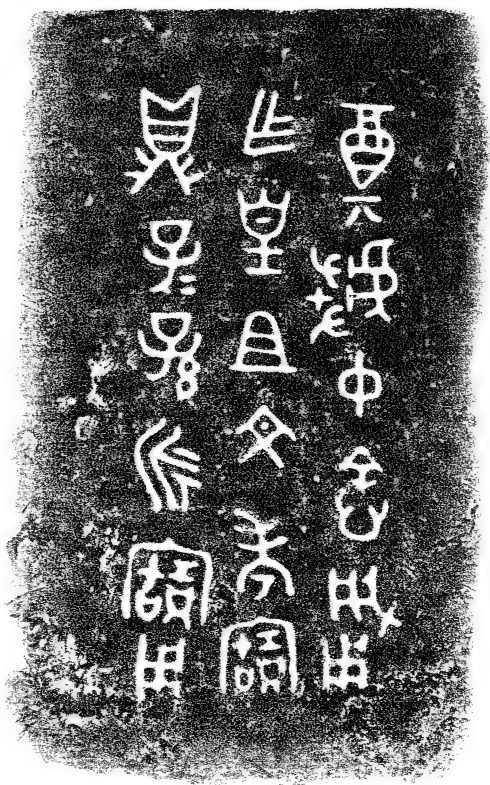 奠虢中悆肈用
乍皇且文考寶
鼎子=孫永寶用